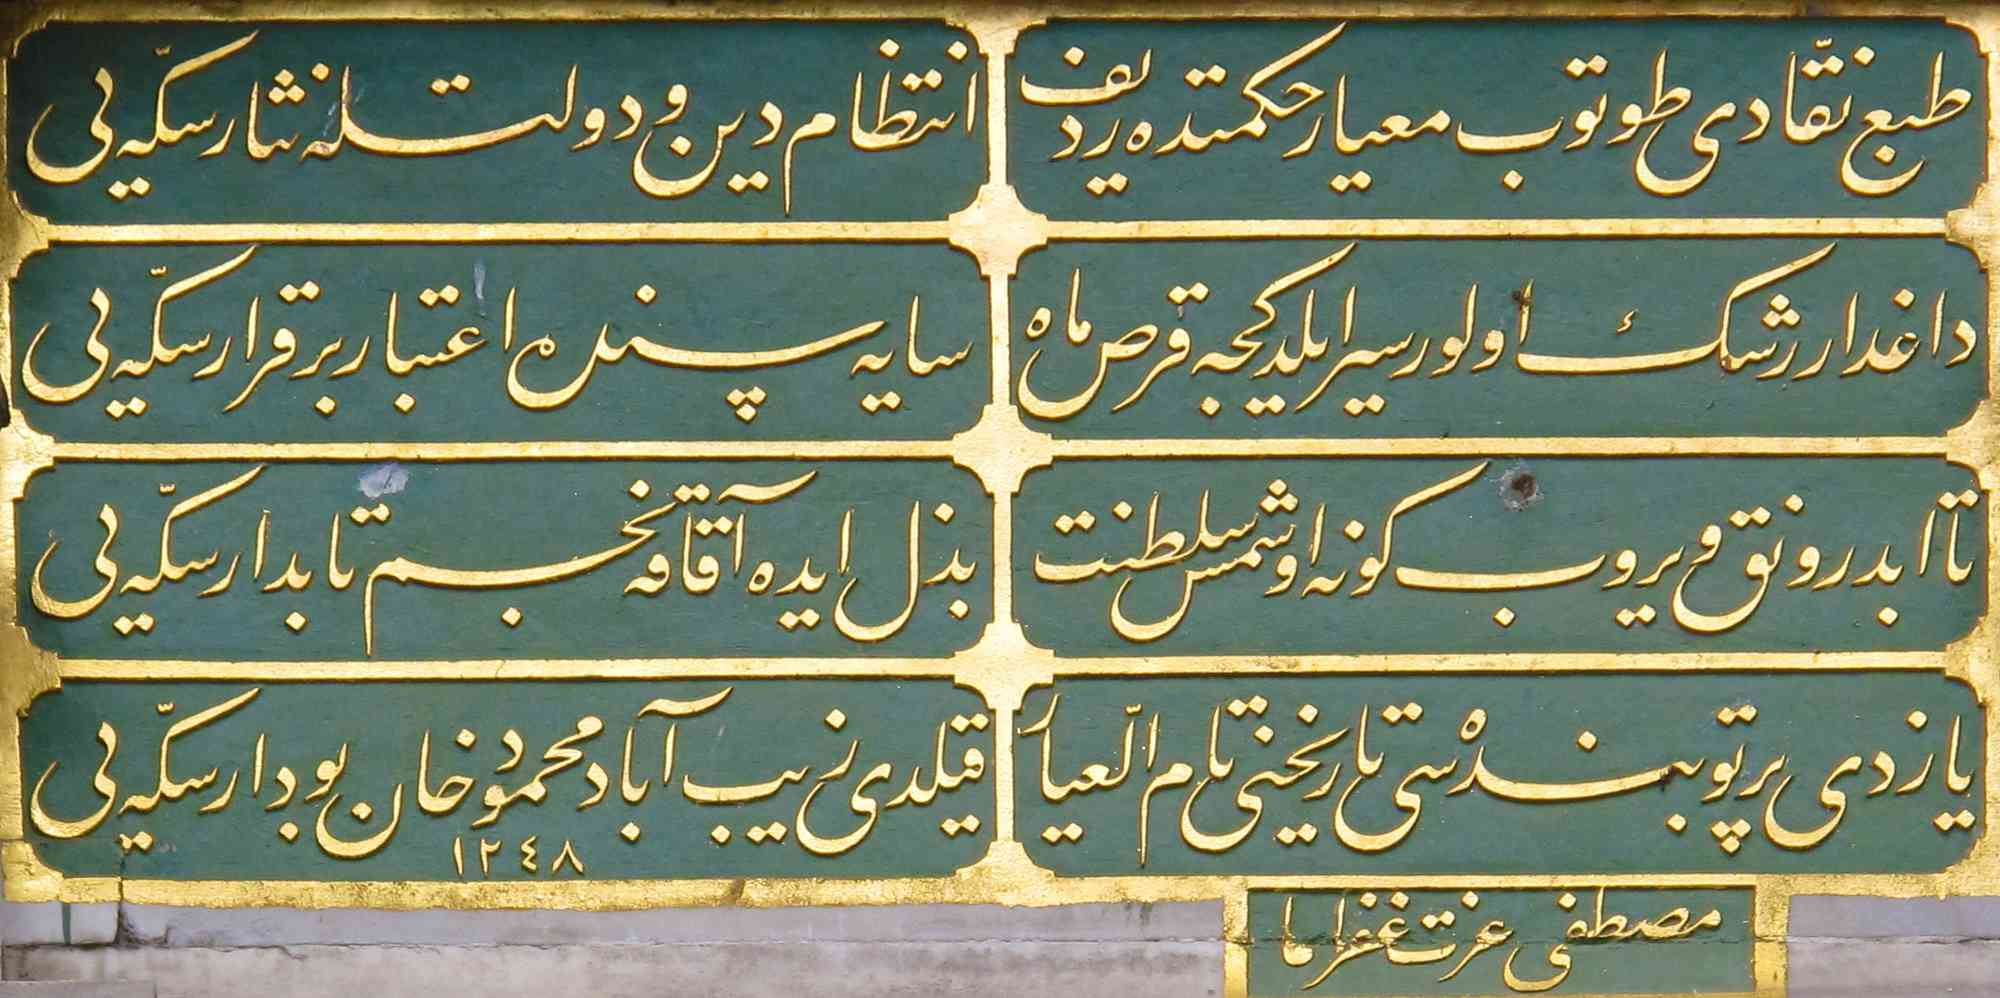 طبع نقادی طوتوب معیار حکمتده ردیف
انتظام دین و دولتله نثار سکّه‌یی
داغدار رشك اولور سیر ایلدکجه قرص ماه
سایه پسنده اعتبار برقرار سکّه‌یی
تا ابد رونق ویروب کونه او شمس سلطنت
بذل ایده آفاقه نجم تابدار سکّه‌یی
یازدی پرتو بنده‌سی تاریخنی تام العیار
قیلدی زیب آباد محمود خان بو دار سکّه‌یی
١٢٤٨
مصطفی عزت غفرلهما